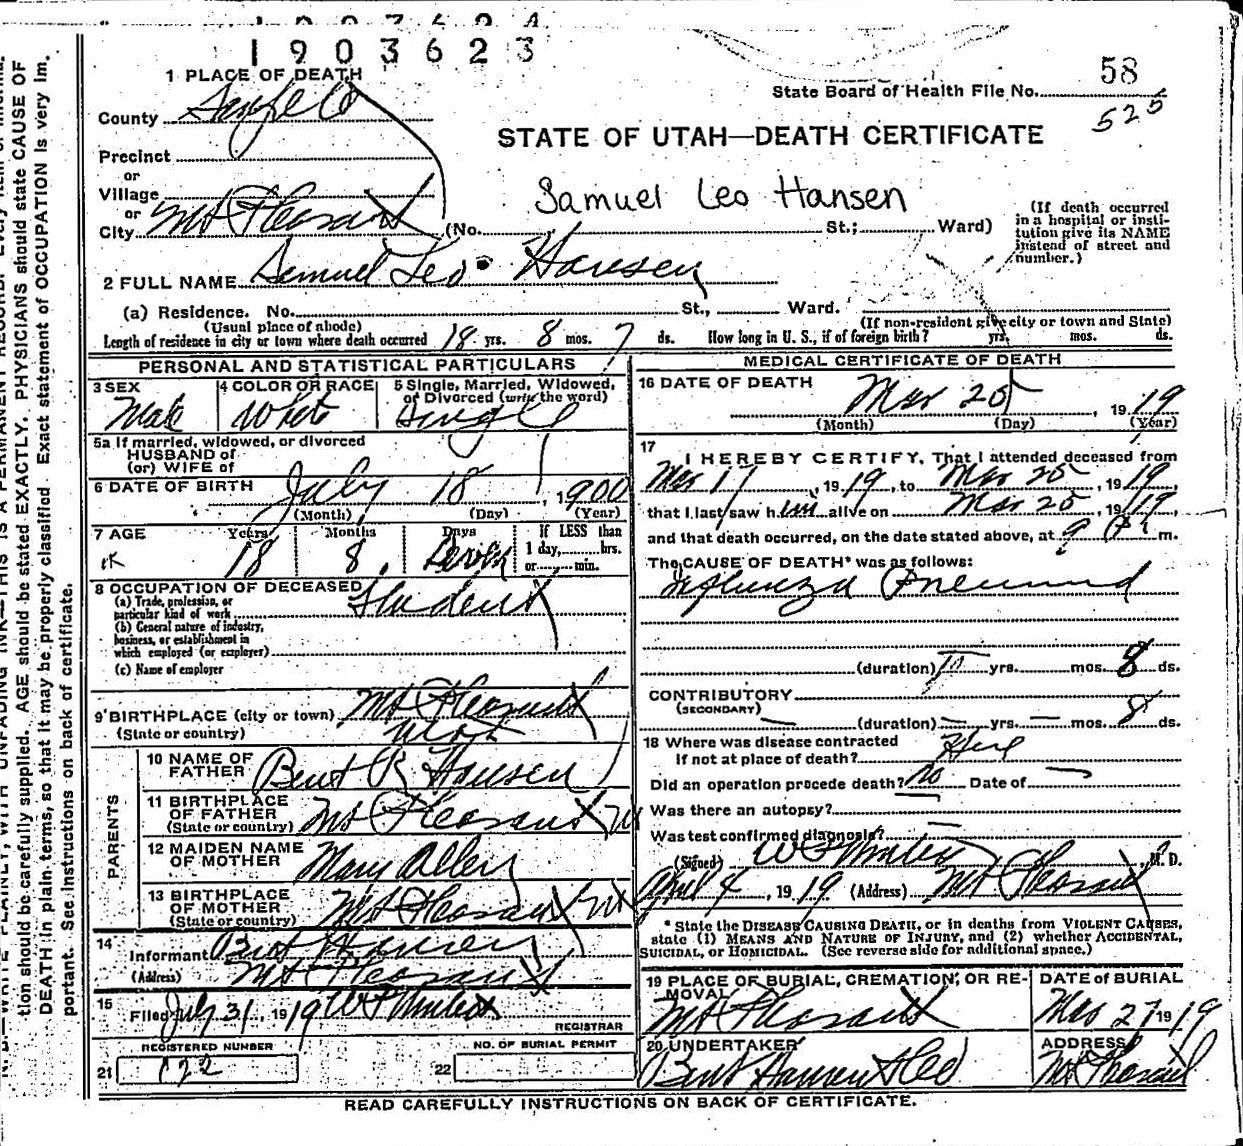 1903623
1 PLACE OF DEATH
58
State Board of Health File No.
525
County Sanpete Co
STATE OF UTAH—DEATH CERTIFICATE
Precinct
or
Village
or
City Mt Pleasant (No. St.; Ward)
Samuel Leo Hansen
(If death occurred
in a hospital or insti-
tution give its NAME
instead of street and
number.)
2 FULL NAME Samuel Leo Hansen
(a) Residence. No. St., Ward.
(Usual place of abode)
(If non-resident give city or town and State)
Length of residence in city or town where death occurred 18 yrs. 8 mos. 7 ds. How long in U. S., if of foreign birth? yrs. mos. ds.
PERSONAL AND STATISTICAL PARTICULARS
3 SEX
Male
4 COLOR OR RACE
White
5 Single, Married, Widowed,
or Divorced (write the word)
Single
5a If married, widowed, or divorced
HUSBAND of
(or) WIFE of
6 DATE OF BIRTH July 18, 1900
(Month) (Day) (Year)
7 AGE Years Months Days If LESS than
18 8 Seven 1 day, hrs.
or min.
8 OCCUPATION OF DECEASED Student
(a) Trade, profession, or
particular kind of work
(b) General nature of industry,
business, or establishment in
which employed (or employer)
(c) Name of employer
9 BIRTHPLACE (city or town) Mt Pleasant
(State or country) Utah
PARENTS
10 NAME OF
FATHER Bent R Hansen
11 BIRTHPLACE
OF FATHER
(State or country) Mt Pleasant
12 MAIDEN NAME
OF MOTHER Mary Allen
13 BIRTHPLACE
OF MOTHER
(State or country) Mt Pleasant
14
Informant Bent Hansen
(Address) Mt Pleasant
15
Filed July 31, 1919
REGISTRAR
REGISTERED NUMBER
21 122
NO. OF BURIAL PERMIT
22
MEDICAL CERTIFICATE OF DEATH
16 DATE OF DEATH
Mar 25, 1919
(Month) (Day) (Year)
17
I HEREBY CERTIFY, That I attended deceased from
Mar 17, 1919, to Mar 25, 1919,
that I last saw him alive on Mar 25, 1919
and that death occurred, on the date stated above, at 9 P m.
The CAUSE OF DEATH* was as follows:
Influenza Pneumonia
(duration) yrs. mos. 8 ds.
CONTRIBUTORY
(SECONDARY)
(duration) — yrs. — mos. 8 ds.
18 Where was disease contracted
If not at place of death? Here
Did an operation precede death? No Date of —
Was there an autopsy?
Was test confirmed diagnosis? —
(Signed) , M. D.
April 4, 1919 (Address) Mt Pleasant
*State the DISEASE CAUSING DEATH, or in deaths from VIOLENT CAUSES,
state (1) MEANS AND NATURE OF INJURY, and (2) whether ACCIDENTAL,
SUICIDAL, or HOMICIDAL. (See reverse side for additional space.)
19 PLACE OF BURIAL, CREMATION, OR RE-
MOVAL
Mt Pleasant
DATE of BURIAL
Mar 27 1919
20 UNDERTAKER
Bent Hansen
ADDRESS
Mt Pleasant
READ CAREFULLY INSTRUCTIONS ON BACK OF CERTIFICATE.
tion should be carefully supplied. AGE should be stated EXACTLY. PHYSICIANS should state CAUSE OF
DEATH in plain terms, so that it may be properly classified. Exact statement of OCCUPATION is very im.
portant. See instructions on back of certificate.